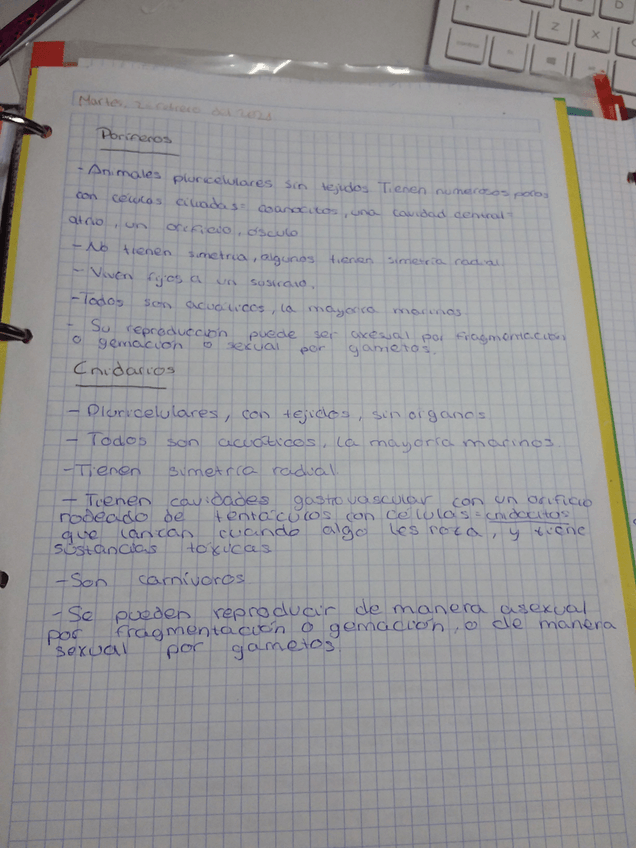 Martes, 2 febrero del 2021
Poríferos
- Animales pluricelulares sin tejidos Tienen numerosos poros
con células ciliadas= coanocitos, una cavidad central=
atrio, un orificio, osculo
- No tienen simetria, algunos tienen simetria radial
- Viven fijos a un sustrato.
- Todos son acuáticos, la mayoría marinos
- Su reproducción puede ser axesual por fragmentación
o gemación o sexual por gametos.
Cnidarios
- Pluricelulares, con tejidos, sin organos
- Todos son acuáticos, la mayoría marinos.
- Tienen simetría radual
- Tienen cavidades gastrovascular con un orificio
rodeado de tentáculos con células=cnidocitos
que lancan cuando algo les roza, y tiene
sustancias toxicas
- Son carnívoros
- Se pueden reproducir de manera asexual
por fragmentación o gemación, o de manera
sexual por gametos.